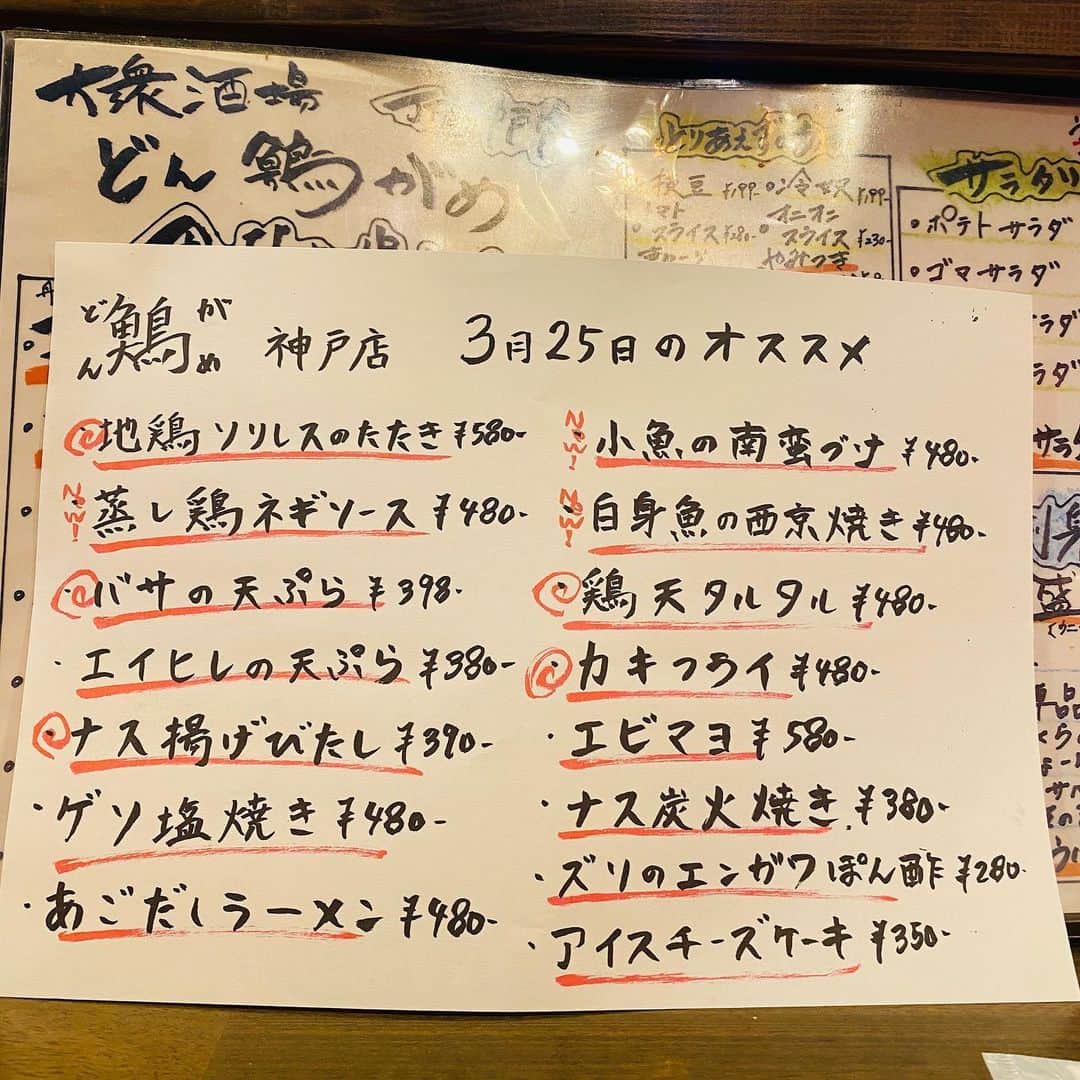 大衆酒場
どん鶏がめ
とりあえず
枝豆 ¥199- 冷奴 ¥199-
トマト オニオン
スライス ¥280- スライス ¥230-
やみつき
サラダ
・ポテトサラダ
・ゴマサラダ
ラダ
ラダ
サラダ
どん鶏がめ 神戸店 3月25日のオススメ
地鶏ソリレスのたたき ¥580-
New! 蒸し鶏ネギソース ¥480-
バサの天ぷら ¥398-
・エイヒレの天ぷら ¥380-
ナス揚げびたし ¥390-
・ゲソ塩焼き ¥480-
・あごだしラーメン ¥480-
New! 小魚の南蛮づけ ¥480-
New! 白身魚の西京焼き ¥480-
鶏天タルタル ¥480-
カキフライ ¥480-
・エビマヨ ¥580-
・ナス炭火焼き ¥380-
・ズリのエンガワぽん酢 ¥280-
・アイスチーズケーキ ¥350-